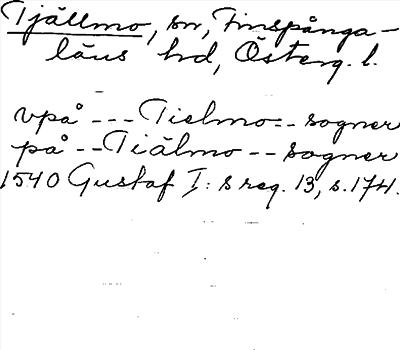 Tjällmo, sn, Finspånga-
läns hd, Österg. l.
vpå --- Tielmo -- sogner
på -- Tiälmo -- sogner
1540 Gustaf I: s reg. 13, s. 174.